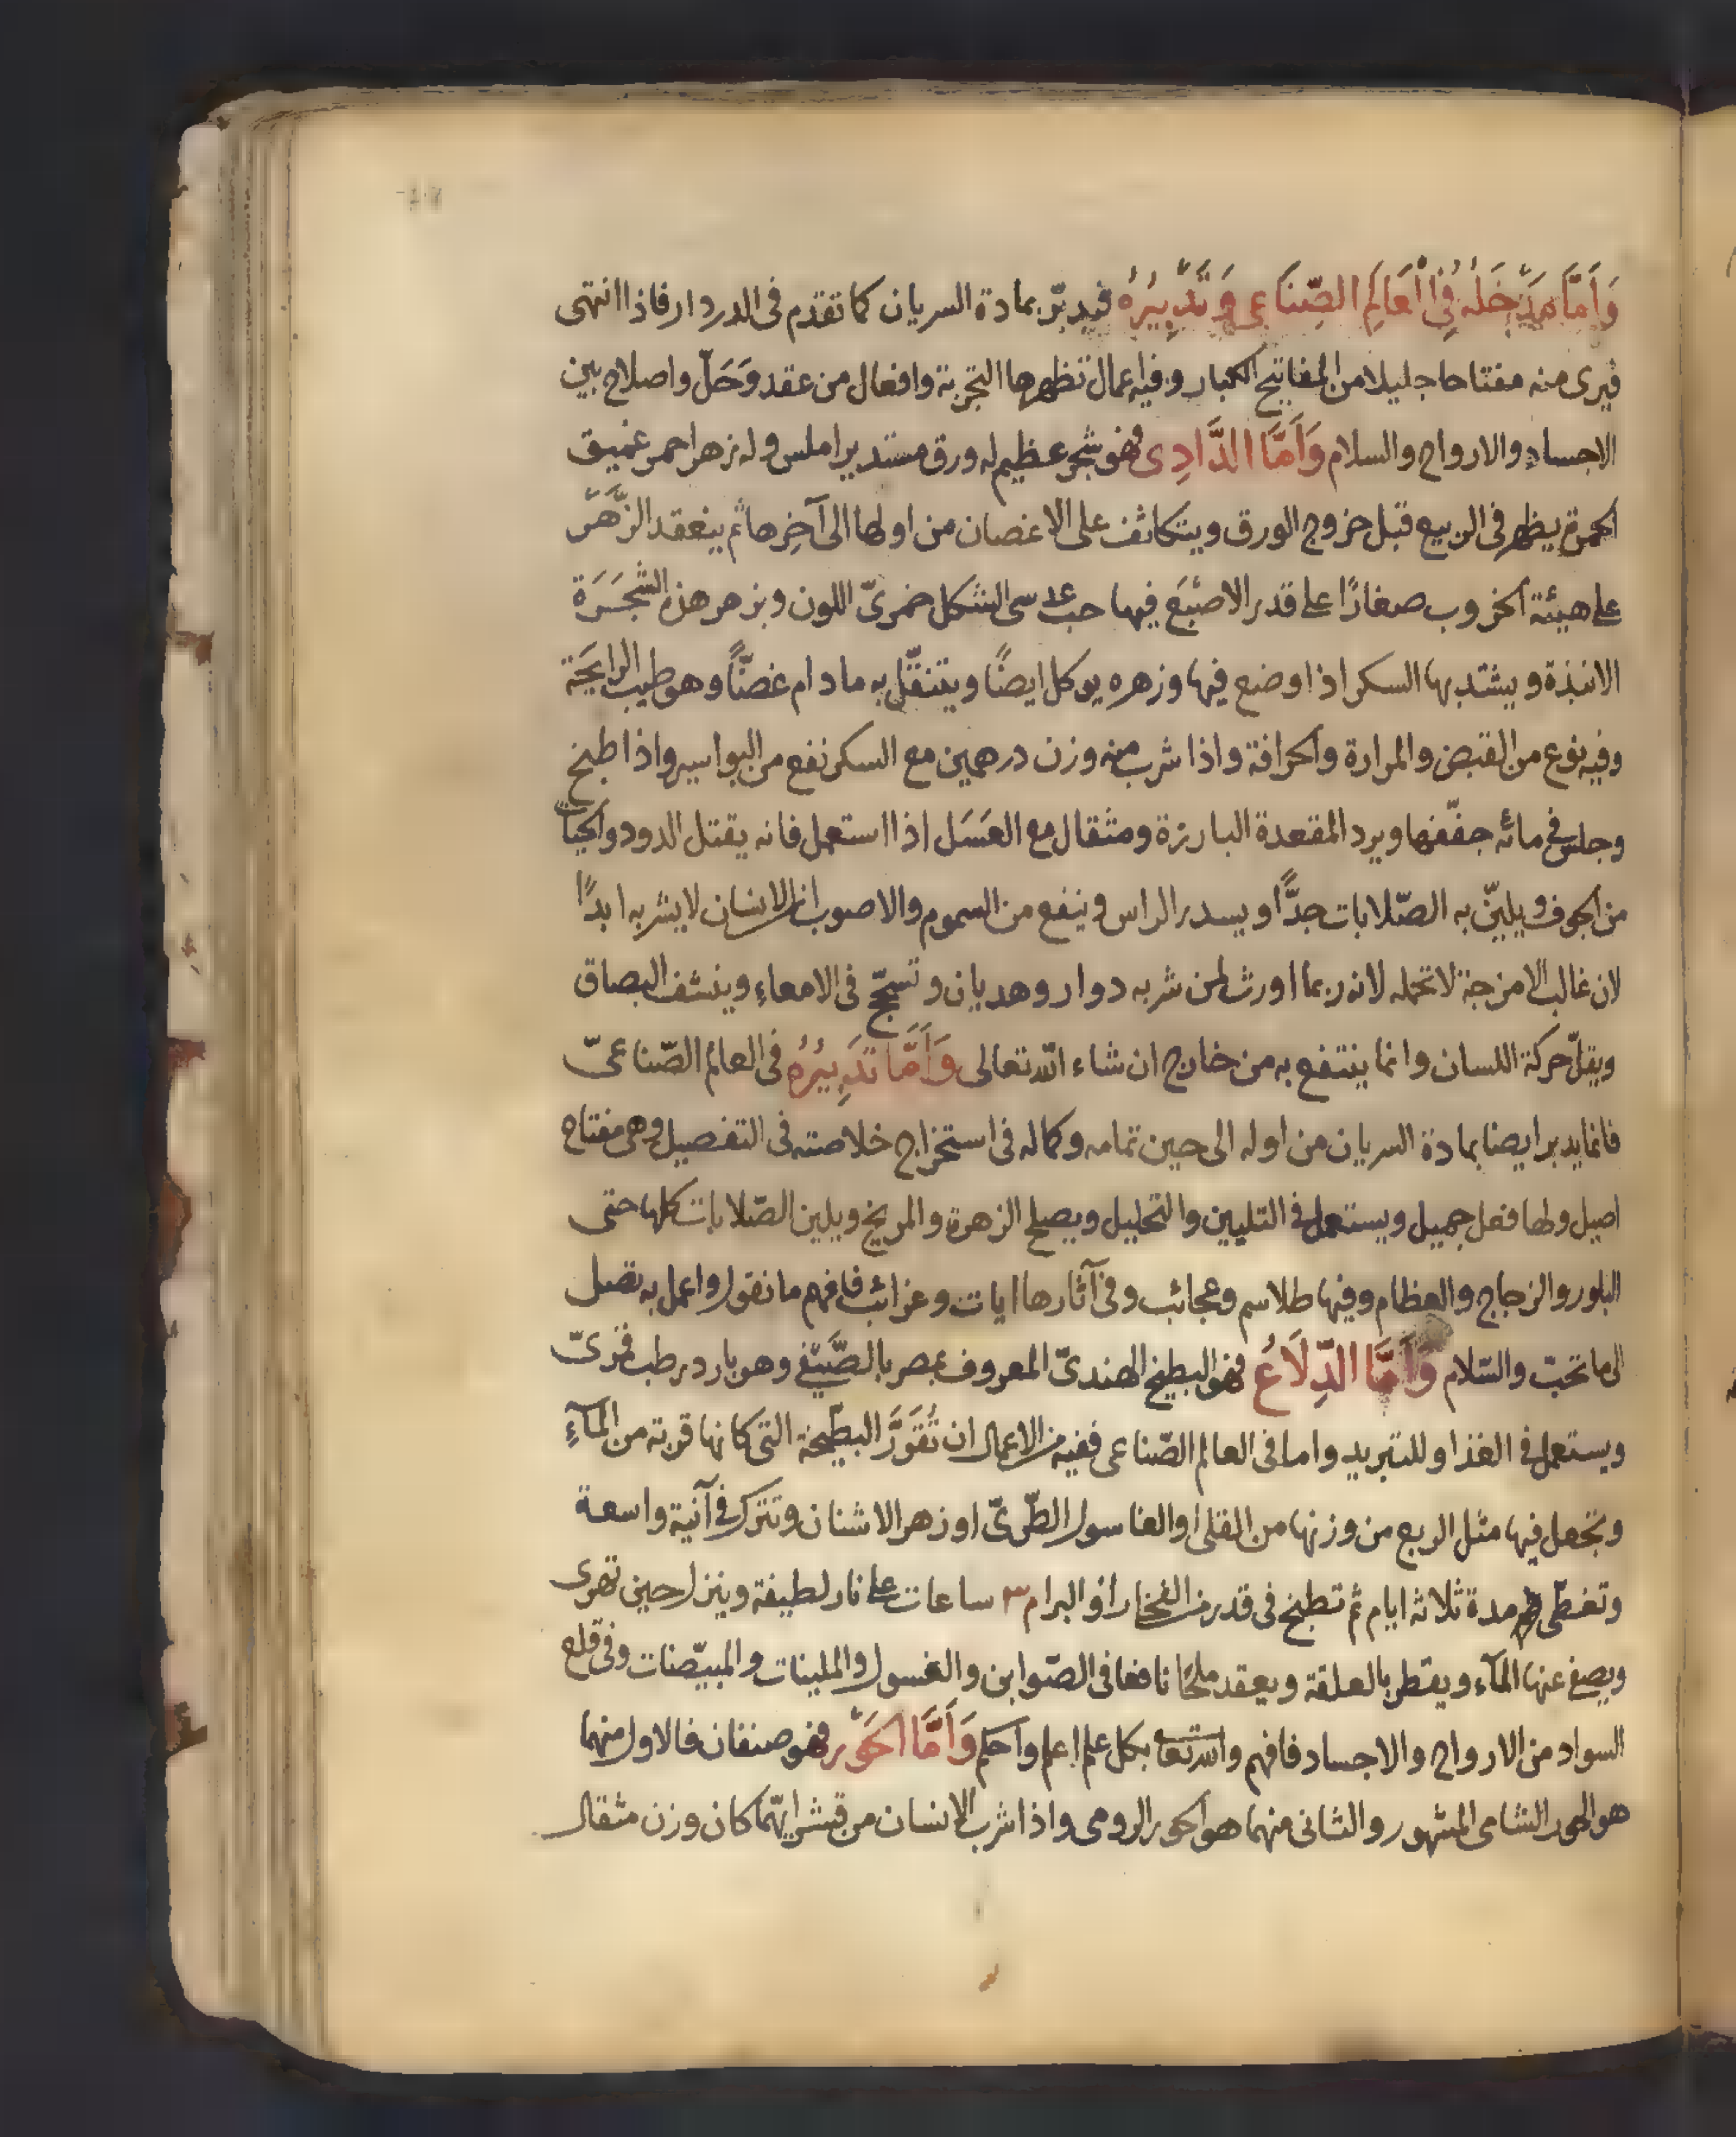 وَأَمَّا مَدْخَلُهُ فِي الْعَالَمِ الصِّنَاعِي وَتَدْبِيْرُهُ فيدبّر بمادة السريان كما تقدم فى الدردار فاذا انتهى
فيرى منه مفتاحا جليلا من المفاتيح الكبار وفيه اعمال تظهرها التجربة وافعال من عقد وَحَلّ واصلاح بين
الاجساد والارواح والسلام وَأَمَّا الدَّادِى فهو شجر عظيم له ورق مستدير املس وله زهر احمر عميق
الحمرة يظهر فى الربيع قبل خروج الورق ويتكاثف على الاغصان من اولها الى آخِرها ثم ينعقد الزَّهْر
على هيئة الخروب صغارًا على قدر الاصْبَع فيها حب عدسى الشكل خمرىّ اللون وبزهر هذه الشجَرَة
الانبذة ويشتد بها السكر اذا وضع فيها وزهره يوكل ايضًا ويتنقّل به ما دام غضًّا وهو طيب الرايحَة
وفيه نوع من القبض والمرارة والحرافة واذا شرب منه وزن درهمين مع السكر نفع من البواسير واذا طبخ
وجلس فى مائه جفّفها ويرد المقعدة البارزة ومثقال مع العسَل اذا استعمل فانه يقتل الدود والحيات
من الجوف ويليّن به الصّلابات جدًّا ويسدر الراس وينفع من السموم والاصوب ان الانسان لا يشربه ابدًا
لان غالب الامزجة لا تحمله لانه ربما اورث لمن شربه دوار وهديان وتسحّج فى الامعاء وينشف البصاق
ويقلّ حركة اللسان وانما ينتفع به من خارج ان شاء الله تعالى وَأَمَّا تَدْبِيْرُهُ فى العالم الصّناعىّ
فانما يدبر ايضا بمادة السريان من اوله الى حين تمامه وكماله فى استخراج خلاصته فى التفصيل وهى مفتاح
اصيل ولها فعل جميل ويستعمل فى التليين والتحليل ويصلح الزهرة والمريخ ويلين الصّلابات كلها حتى
البلور والزجاج والعظام وفيها طلاسم وعجائب وفى آثارها ايات وغرائب فافهم ما نقول واعمل به تصل
الى ما تحب والسّلام وَأَمَّا الدِّلَاعُ فهو البطيخ الهندىّ المعروف بمصر بالصَّيْفى وهو بارد رطب قمرىّ
ويستعمل فى الغذا وللتبريد واما فى العالم الصّناعى ففيه من الاعمال ان تُقَوَّرَ البطّيخة التى كانها قربة من المآءِ
وتجعل فيها مثل الربع من وزنها من القلى او الغاسول الطّرىّ او زهر الاشنان وتترك فى آنية واسعة
وتغطّى مدة ثلاثة ايام ثم تطبخ فى قدر من الفخار او البرام ٣ ساعات على نار لطيفة وينزل حين تهرى
ويصفى عنها المآء ويقطر بالعلقة ويعقد ملحًا نافعا فى الصّوابن والغسول والملينات والمبيّضات وفى قلع
السواد من الارواح والاجساد فافهم والله تعا بكل علم اعلم واحكم وَأَمَّا الْحَوْر فهو صنفان فالاول منهما
هو الحور الشامى المشهور والثانى منهما هو الحور الرومى واذا شرب الانسان من قشر ايهّما كان وزن مثقال